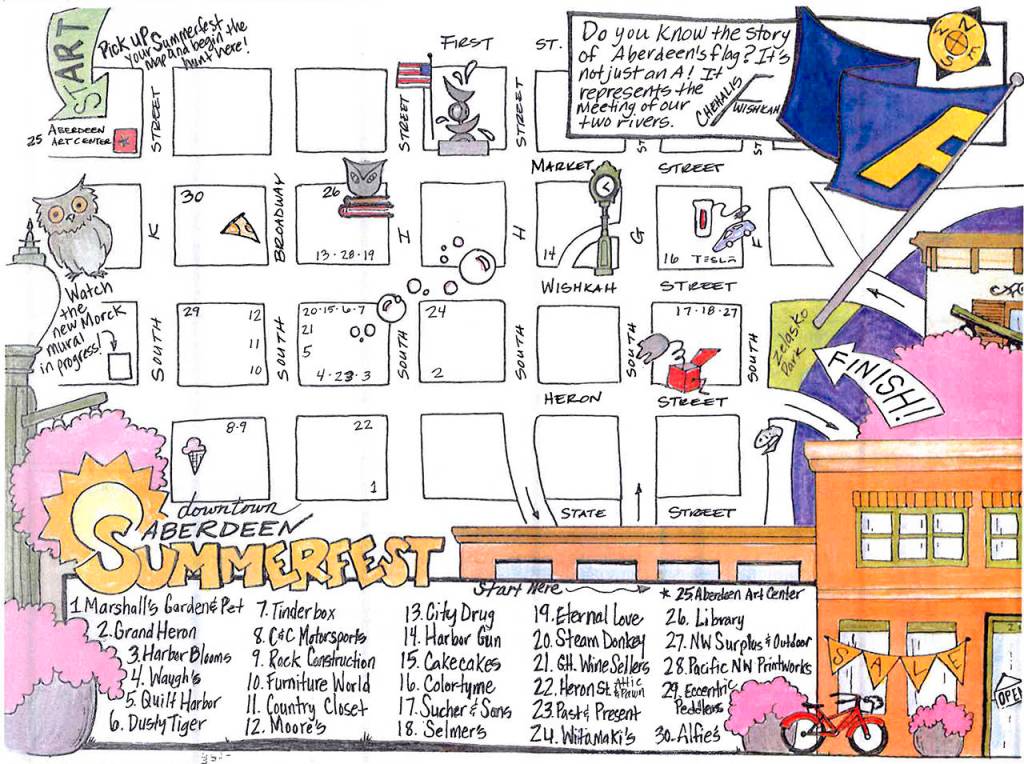 START
Pick UP
your Summerfest
map and begin the
hunt here!
FIRST ST.
Do you Know the story
of Aberdeen's flag? It's
not just an A! It
represents the
meeting of our
two rivers.
CHEHALIS
WISHKAH
N
E
S
W
A
25 ABERDEEN
ART CENTER
STREET
STREET
STREET
ST
ST
MARKET STREET
30
K
BROADWAY
26
13-28-19
I
H
14
G
16 TESLA
F
WISHKAH STREET
Watch
the
new Morck
mural
in progress!
SOUTH
29
12
11
10
SOUTH
20-15-6-7
21
5
4-23-3
SOUTH
24
2
SOUTH
SOUTH
17-18-27
SOUTH
Zelasko
Park
FINISH!
HERON STREET
8-9
22
1
STATE STREET
downtown
ABERDEEN
SUMMERFEST
Start Here
1 Marshall's Garden & Pet
2. Grand Heron
3. Harbor Blooms
4. Waugh's
5. Quilt Harbor
6. Dusty Tiger
7. Tinderbox
8. C&C Motorsports
9. Rock Construction
10. Furniture World
11. Country Closet
12. Moore's
13. City Drug
14. Harbor Gun
15. Cakecakes
16. Colortyme
17. Sucher & Sons
18. Selmer's
19. Eternal Love
20. Steam Donkey
21. G.H. Wine Sellers
22. Heron St. Attic & Pawn
23. Past & Present
24. Witamaki's
* 25 Aberdeen Art Center
26. Library
27. NW Surplus & Outdoor
28. Pacific NW Printworks
29. Eccentric
Peddlers
30. Alfie's
SALE
OPEN